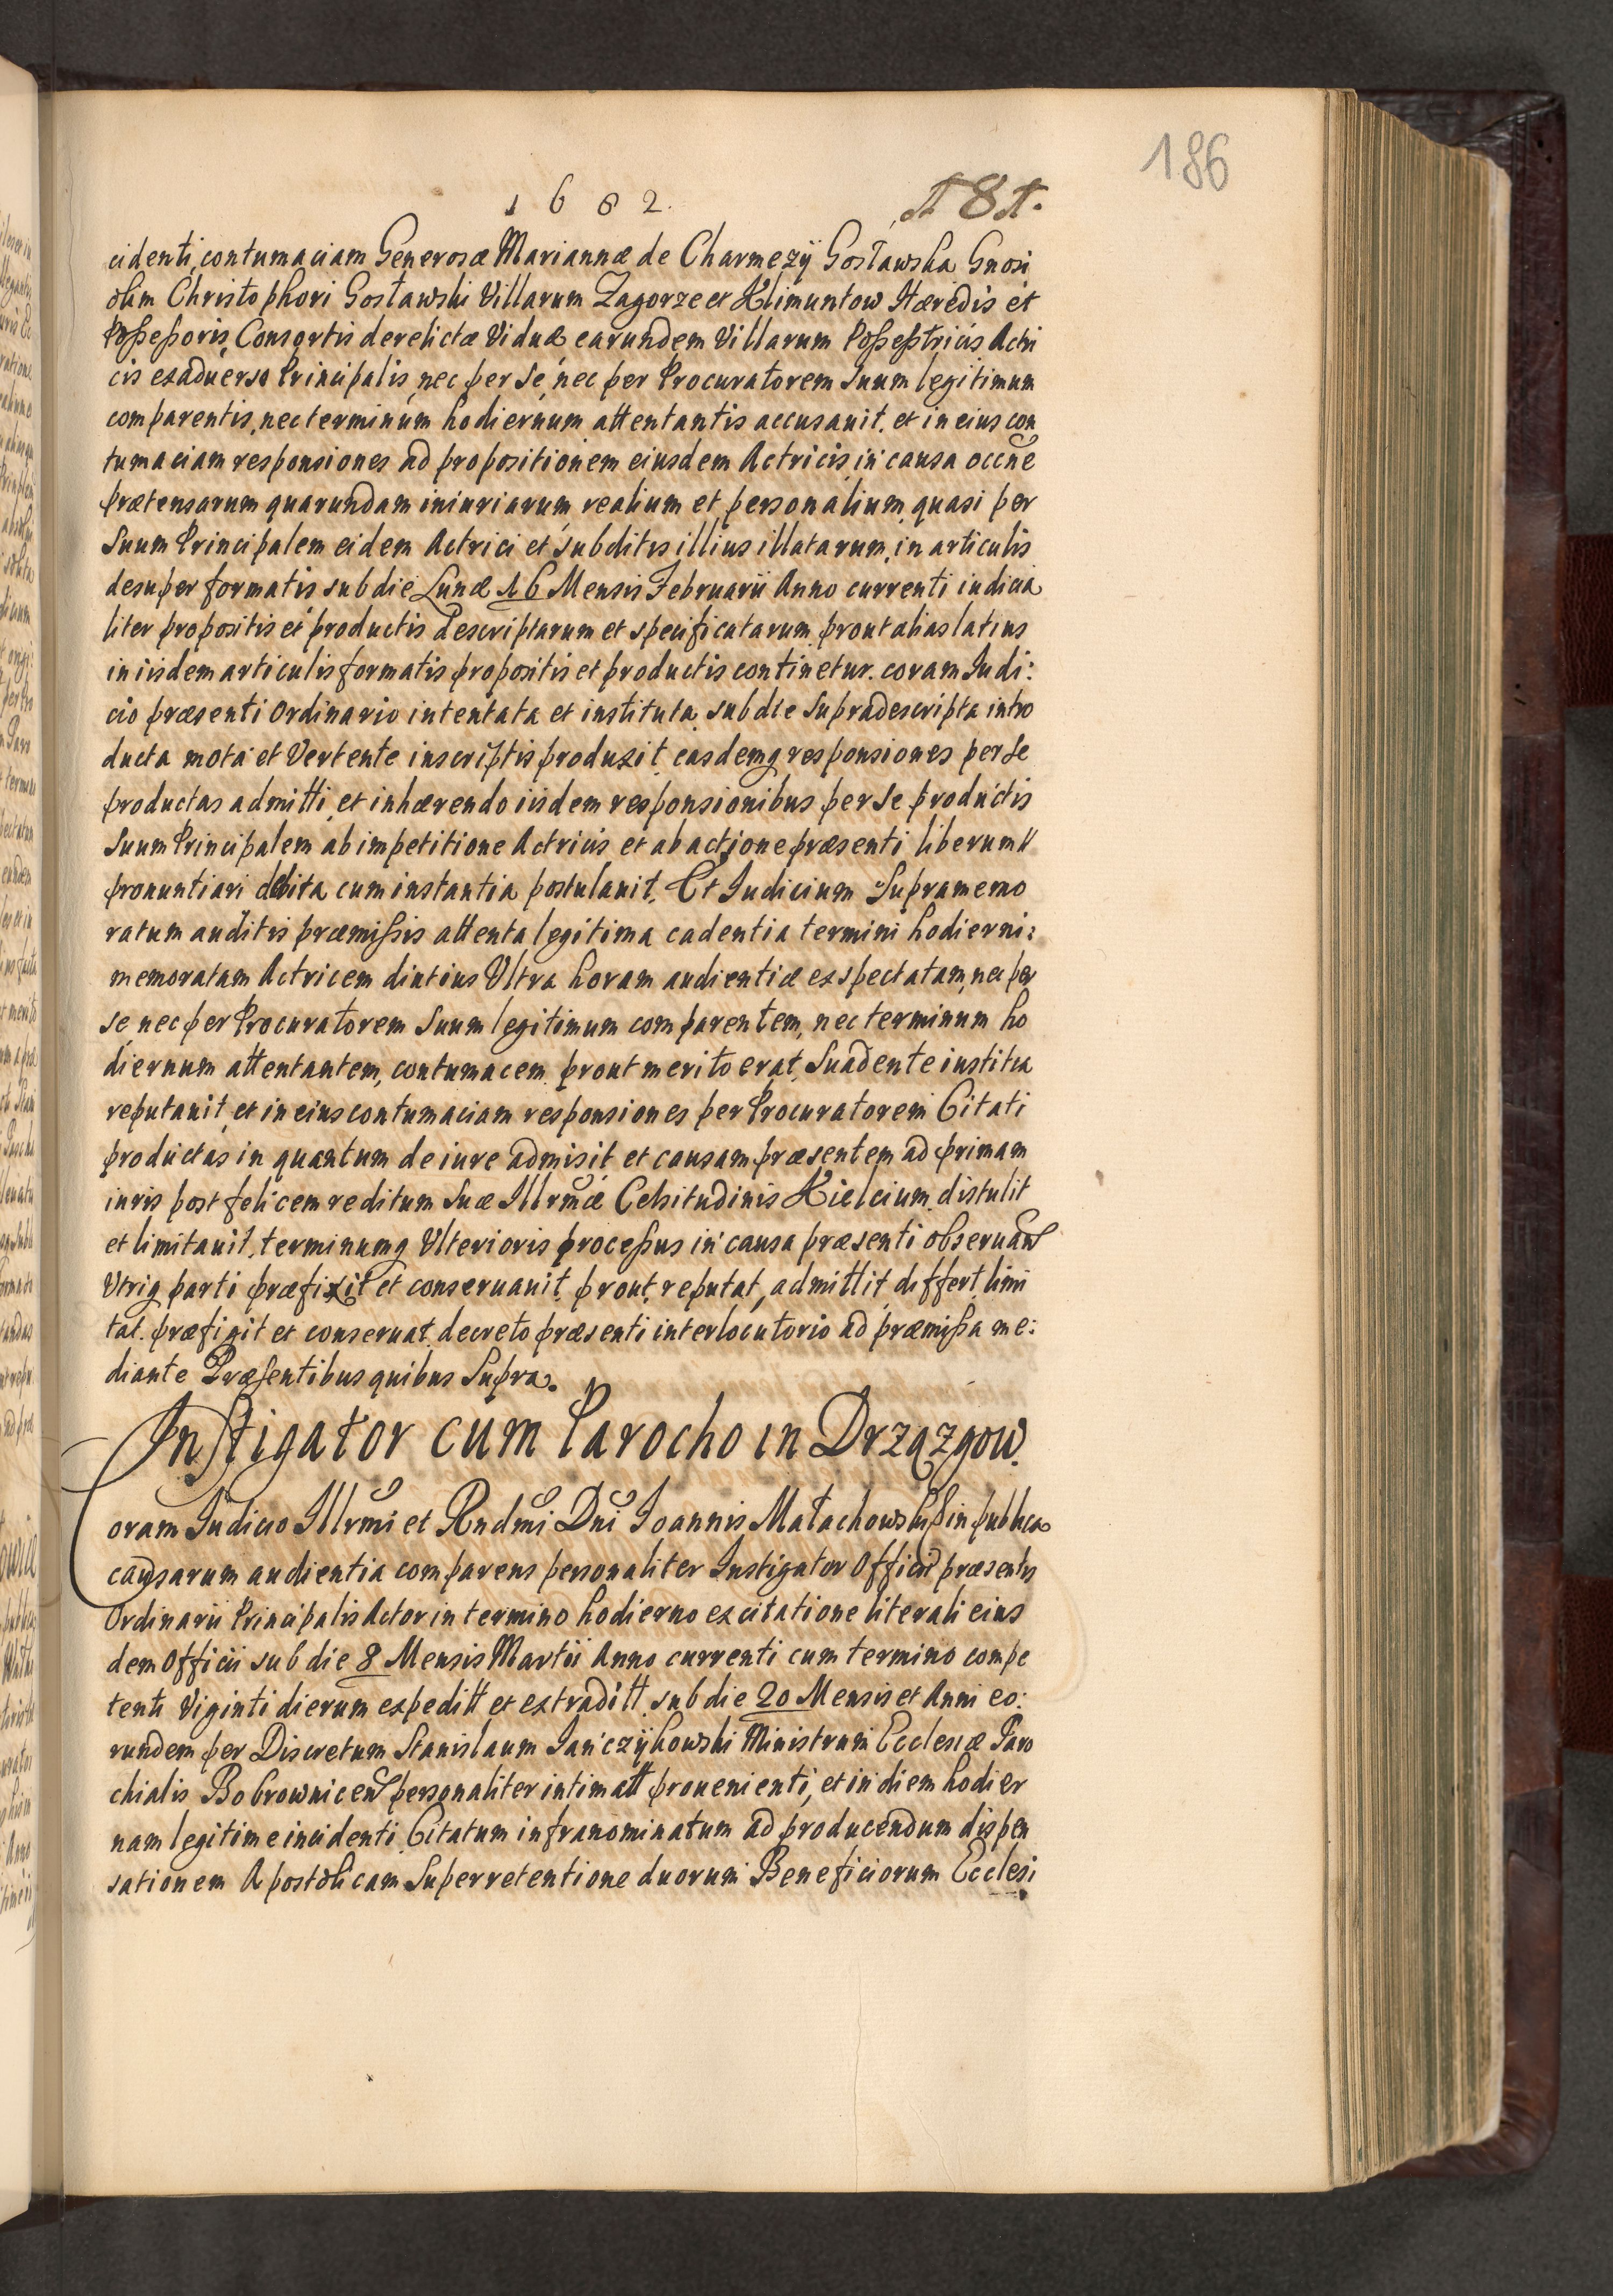 186
1682. 181.
cidenti, contumaciam Generosæ Mariannæ de Charmezÿ Gosławska Gnosi
olim Christophori Gosławski Villarum Zagorze et Klimuntow Hæredis et
Poßeßoris, Consortis derelictæ Viduæ earundem Villarum Poßeßtricis Actri
cis exaduerso Principalis, nec per se, nec per Procuratorem suum legitimum
comparentis, nec terminum hodiernum attentantis accusauit. et in eius con
tumaciam responsiones ad propositionem eiusdem Actricis, in causa occne
prætensarum quarundam iniuriarum realium et personalium, quasi per
Suum Principalem eidem Actrici et subditis illius illatarum, in articulis
desuper formatis sub die Lunæ 16 Mensis Februarii Anno currenti iudicia
liter propositis et productis descriptarum et specificatarum prout alias latius
in iisdem articulis formatis propositis et productis continetur. coram Judi:
cio præsenti Ordinario intentata et instituta, sub die Supradescripta intro
ducta mota et Vertente inscriptis produxit, easdemq responsiones per se
productas admitti, et inhærendo iisdem responsionibus per se productis
Suum Principalem ab impetitione Actricis et ab actione præsenti liberum
pronuntiari debita cum instantia postulauit. Et Judicium Supramemo
ratum auditis præmißis attenta legitima cadentia termini hodierni:
memoratam Actricem diutius Ultra horam audientiæ exspectatam, nec per
se, nec per Procuratorem Suum legitimum comparentem, nec terminum ho
diernum attentantem, contumacem prout merito erat, Suadente iustitia
reputauit, et in eius contumaciam responsiones per Procuratorem Citati
productas in quantum de iure admisit et causam præsentem ad primam
iuris post felicem reditum Suæ Illrmæ Celsitudinis Kielcium distulit
et limitauit, terminumq Ulterioris proceßus in causa præsenti obseruan
Utriq parti præfixit et conseruauit, prout reputat, admittit, differt, limi
tat. præfigit et conseruat, decreto præsenti interlocutorio ad præmißa me:
diante Præsentibus quibus Supra.
Instigator cum Parocho in Drzązgow.
Coram Judicio Illrmi et Rndmi Dni Joannis Małachowski in publica
causarum audientia comparens personaliter Instigator Officii præsentis
Ordinarii Principalis Actor in termino hodierno ex citatione literali eius
dem Officii sub die 8 Mensis Martii Anno currenti cum termino compe
tenti Viginti dierum expeditt et extraditt. sub die 20 Mensis et Anni eo:
rundem per Discretum Stanislaum Janczÿkowski Ministrum Ecclesiæ Paro
chialis Bobrownicen personaliter intimatt prouenienti, et in diem hodier
nam legitime incidenti Citatum infranominatum ad producendum dispen
sationem Apostolicam Super retentione duorum Beneficiorum Ecclesi